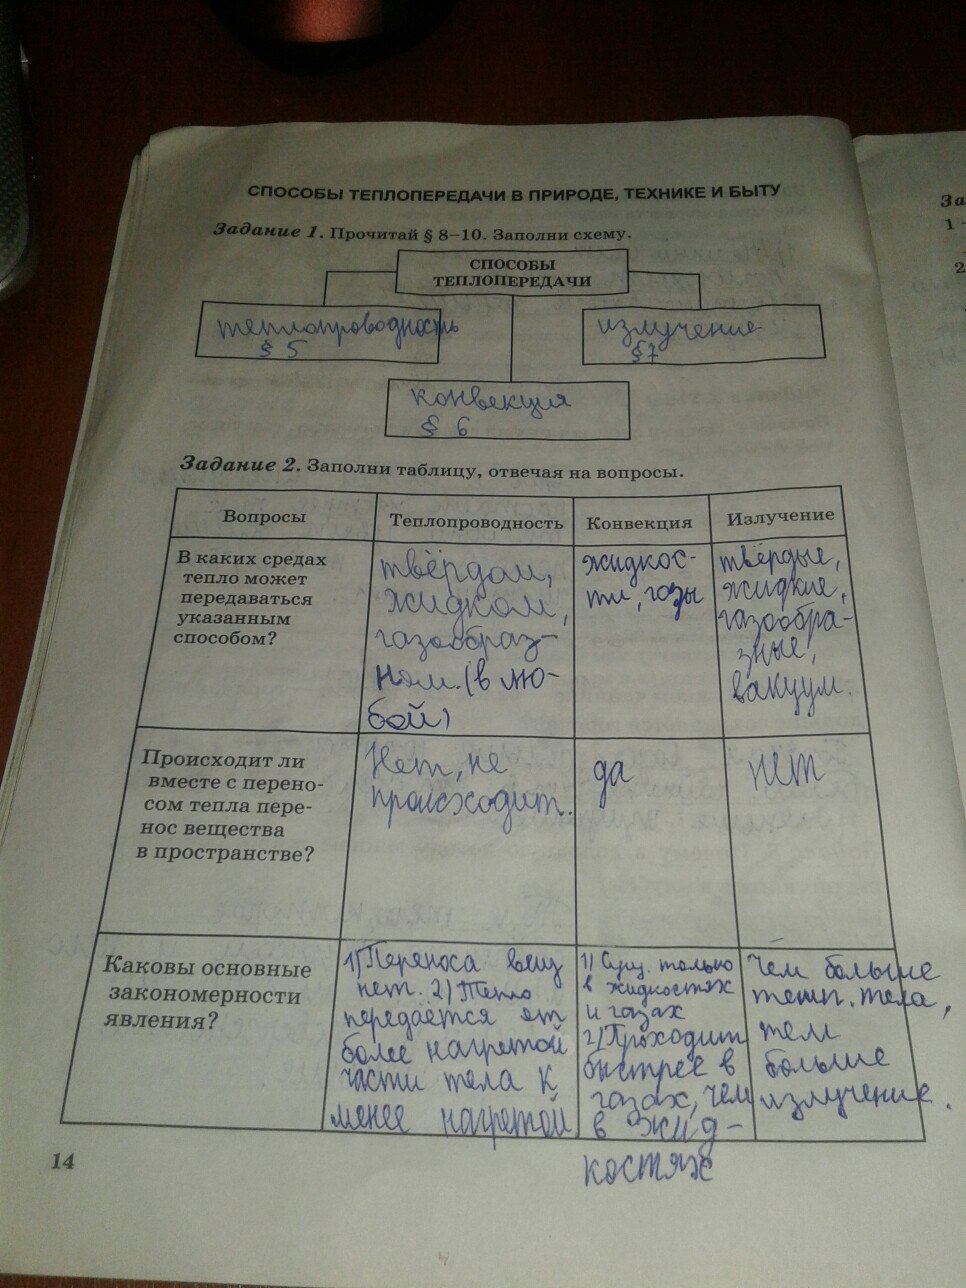 СПОСОБЫ ТЕПЛОПЕРЕДАЧИ В ПРИРОДЕ, ТЕХНИКЕ И БЫТУ
Задание 1. Прочитай § 8–10. Заполни схему.
СПОСОБЫ
ТЕПЛОПЕРЕДАЧИ
теплопроводность
§ 5
излучение
§7
конвекция
§ 6
Задание 2. Заполни таблицу, отвечая на вопросы.
Вопросы
Теплопроводность
Конвекция
Излучение
В каких средах
тепло может
передаваться
указанным
способом?
твёрдом,
жидком,
газообраз-
ном. (в лю-
бой)
жидкос-
ти, газы
твёрдые,
жидкие,
газообра-
зные,
вакуум.
Происходит ли
вместе с перено-
сом тепла пере-
нос вещества
в пространстве?
Нет, не
происходит.
да
нет
Каковы основные
закономерности
явления?
1) Переноса вещ
нет. 2) Тепло
передаётся от
более нагретой
части тела к
менее нагретой
1) Сущ. только
в жидкостях
и газах
2) Проходит
быстрее в
газах, чем
в жид-
костях
Чем больше
темп. тела,
тем
больше
излучение.
14
За
1 –
2